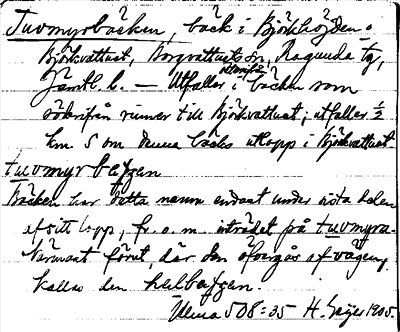 Tuvmyrbäcken, bäck i Björkhöjden.
Björkvattnet, Borgvattnets sn, Ragunda tg,
Jämtl. l. — Utfaller västerifrån i bäcken som
söderifrån rinner till Björkvattnet; utfaller ½
km S om denna bäcks utlopp i Björkvattnet.
tuvmyrbäʃʃen
Bäcken har detta namn endast under sista delen
af sitt lopp, fr. o. m. inträdet på tuvmyra.
Närmast förut, där den öfvergås af vägen,
kallas den kälbäʃʃen.
Ulma 508:35 H. Geijer 1905.